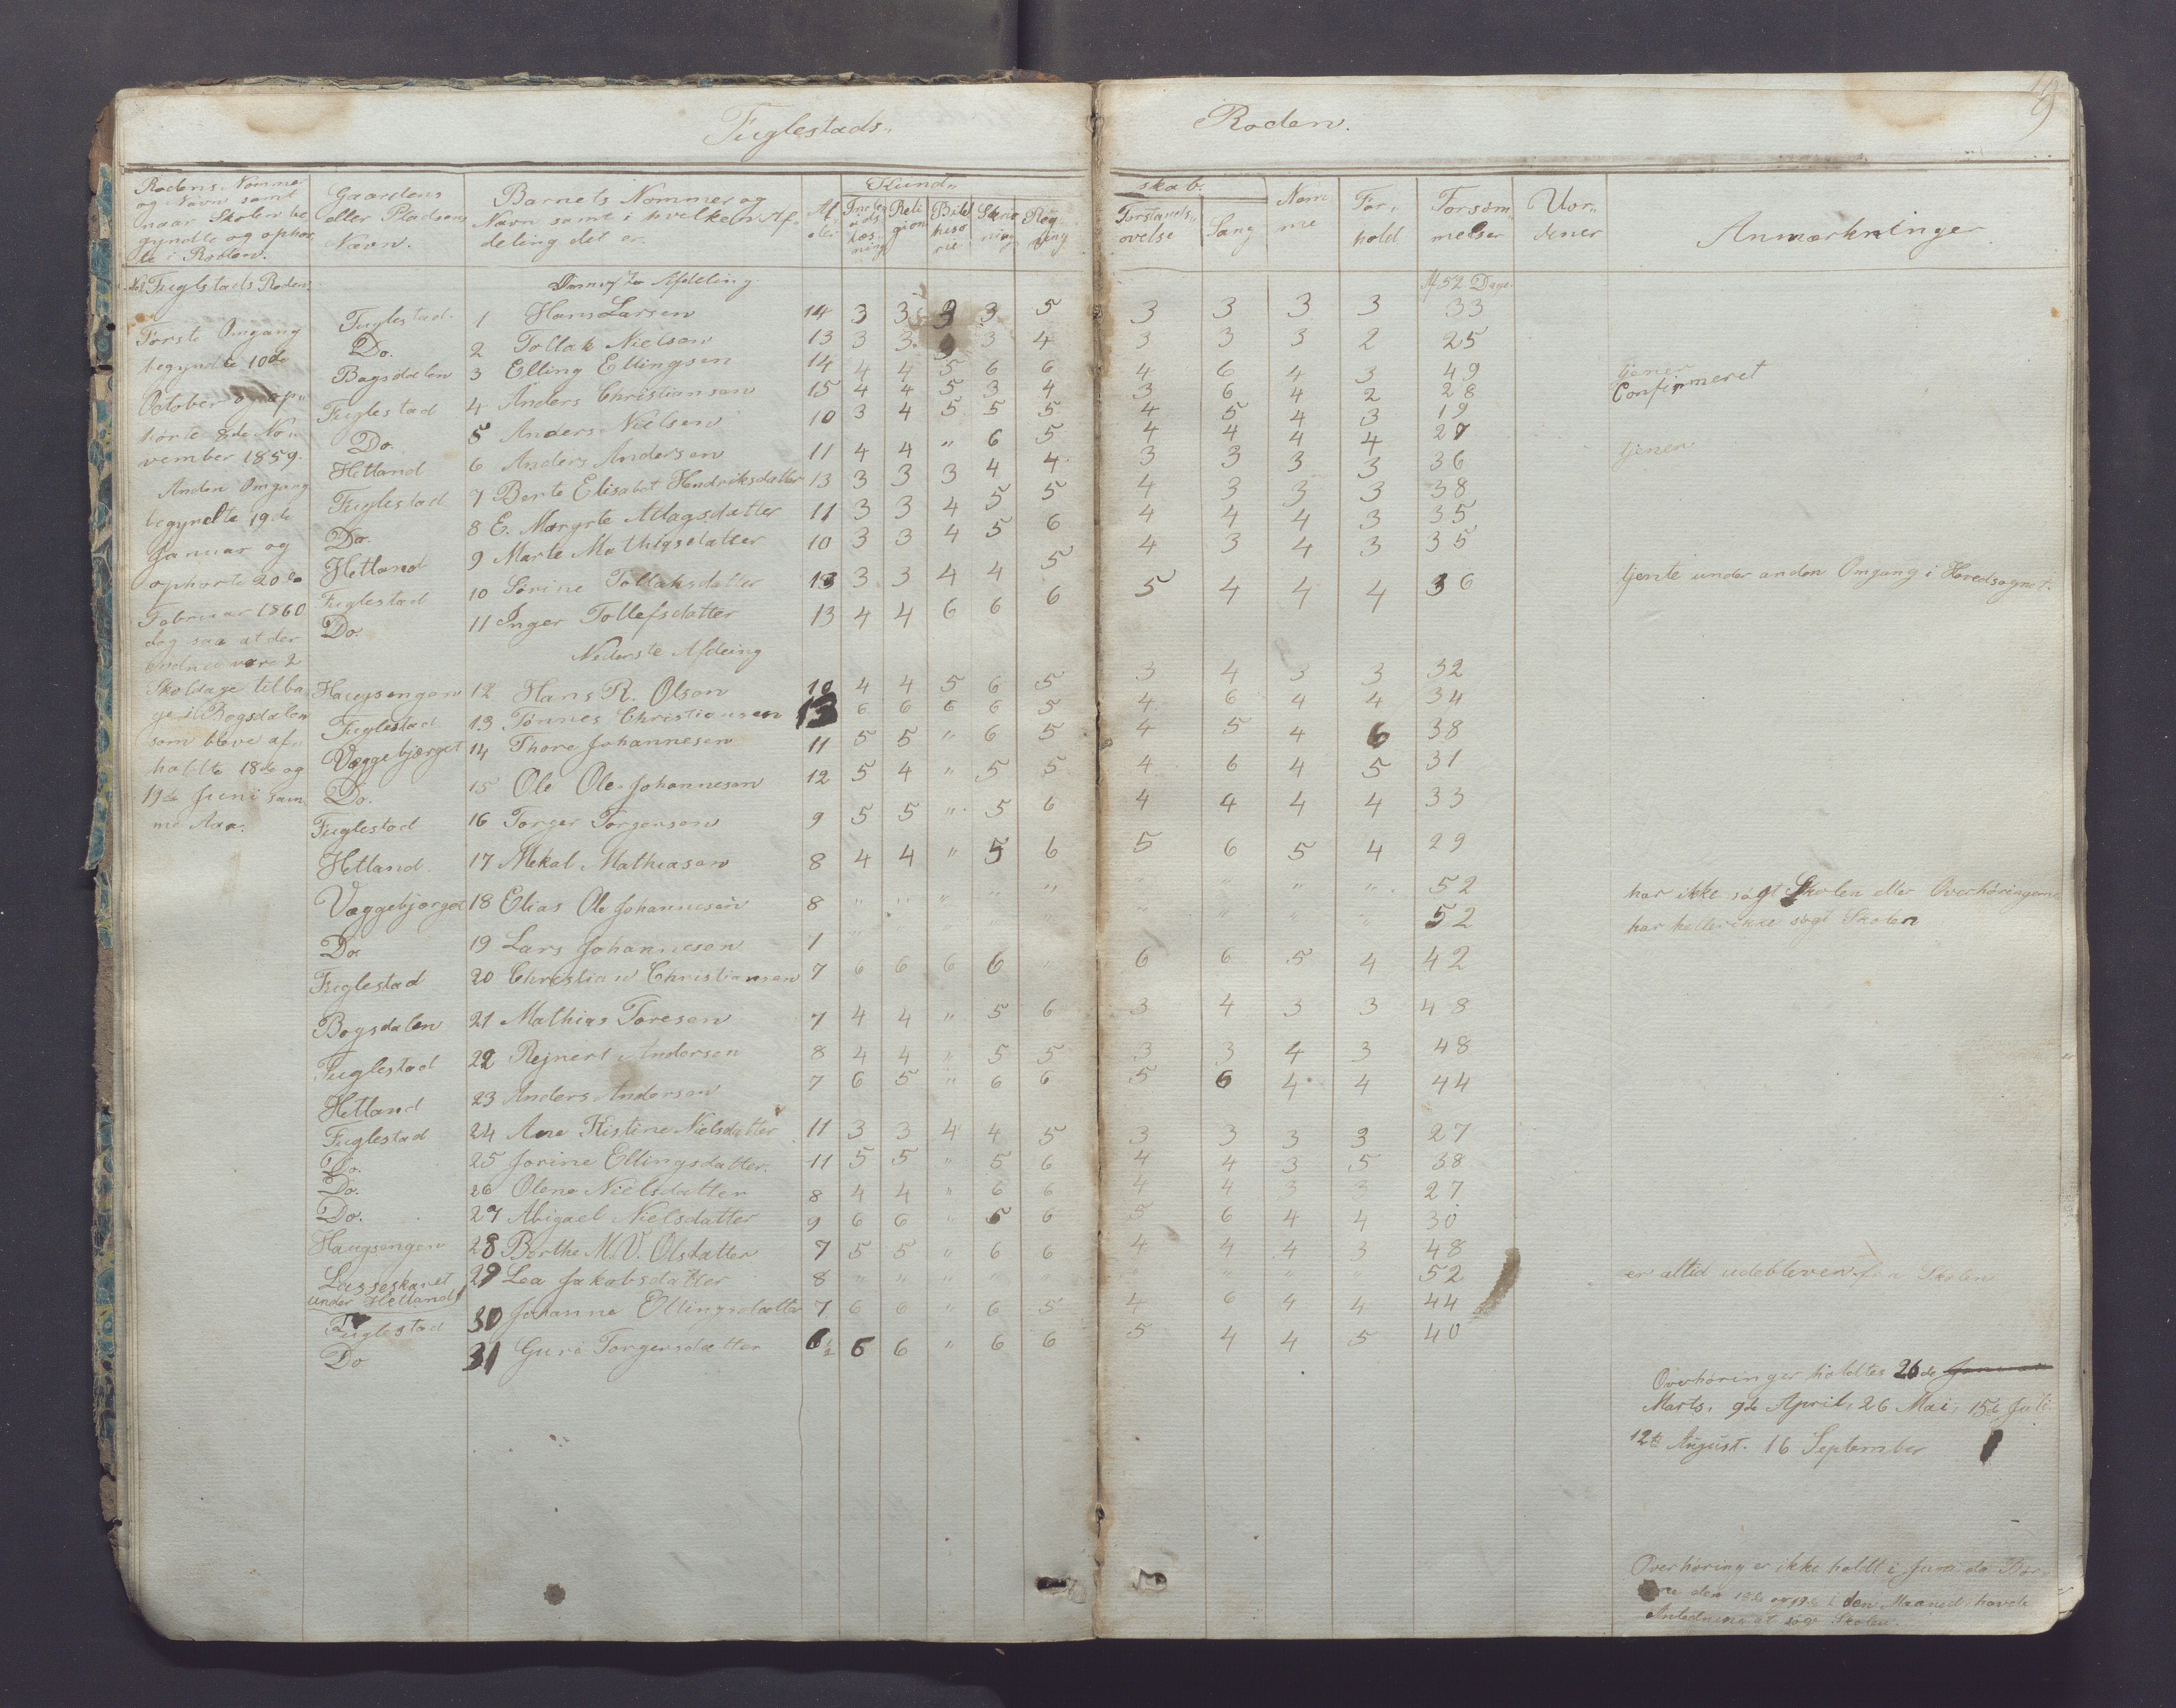 Fuglestads„ Roden.
19
Rodens Nommer og Navn samt naar Skolen be gyndte og ophør te i Roden.
Gaardens eller Pladsens Navn.
Barnets Nommer og Navn samt i hvilken Af„ deling det er.
Al der
Kund„ skab.
Inden ads læs ning
Reli gion
Bibel histo rie
Skriv ning
Reg ning
Forstands„ øvelse
Sang
Nem me
For„ hold
Forsøm„ melser
Uor„ dener
Anmærkninger
No 2 Fuglstads Roden.
Første Omgang
begyndte 10de
October og op„
hørte 8de No„
vember 1859.
Anden Omgang
begyndte 19de
Januar og
ophørte 20de
Februar 1860
dog saa at der
endnu vare 2
Skoldage tilba
ge i Bogsdalen
som bleve af„
holdte 18de og
19de Juni sam
me Aar.
Øverste Afdeling.
Af 52 Dage.
Fuglestad. 1 Hans Larsen 14 3 3 3 3 5 3 3 3 3 33
Do. 2 Tollak Nielsen 13 3 3 3 3 4 3 3 3 2 25
Bogsdalen 3 Elling Ellingsen 14 4 4 5 6 6 4 6 4 3 49 tjener
Fuglestad 4 Anders Christiansen 15 4 4 5 3 4 3 6 4 2 28 Confirmeret
Do. 5 Anders Nielsen 10 3 4 5 5 5 4 5 4 3 19
Hetland 6 Anders Andersen 11 4 4 „ 6 5 4 4 4 4 27
Fuglestad 7 Berte Elisabet Hendriksdatter 13 3 3 3 4 4 3 3 3 3 36 tjener
Do. 8 E. Margrte Atlagsdatter 11 3 3 4 5 5 4 3 3 3 38
Hetland 9 Marte Mathiasdatter 10 3 3 4 5 6 4 4 4 3 35
Fuglestad 10 Sirine Tollaksdatter 13 3 3 4 4 5 4 3 4 3 35
Do. 11 Inger Tollefsdatter 13 4 4 6 6 6 5 4 4 4 36 tjente under anden Omgang i Hovedsognet.
Nederste Afdeing
Haugsengen 12 Hans R. Olsen 10 4 4 5 6 5 3 4 3 3 32
Fuglestad 13 Tønnes Christiansen 13 6 6 6 6 5 4 6 4 4 34
Væggebjærget 14 Thore Johannesen 11 5 5 „ 6 5 4 5 4 6 38
Do. 15 Ole Ole Johannesen 12 5 4 „ 5 5 4 6 4 5 31
Fuglestad 16 Torger Torgersen 9 5 5 „ 5 6 4 4 4 4 33
Hetland. 17 Mekal Mathiasen 8 4 4 „ 5 6 5 6 5 4 29
Væggebjærget 18 Elias Ole Johannesen 8 „ „ „ „ „ „ „ „ „ 52 har ikke søgt Skolen eller Overhøringerne
Do 19 Lars Johannesen 7 „ „ „ „ „ „ „ „ „ 52 har heller ikke søgt Skolen
Fuglestad 20 Christian Christiansen 7 6 6 6 6 „ 6 6 5 4 42
Bogsdalen 21 Mathias Toresen 7 4 4 „ 5 6 3 4 3 3 48
Fuglestad 22 Rejnert Andersen 8 4 4 „ 5 5 3 3 4 3 48
Hetland 23 Anders Andersen 7 6 5 „ 6 6 5 6 4 4 44
Fuglestad 24 Ane Kistine Nielsdatter 11 3 3 4 4 5 3 3 3 3 27
Do. 25 Jorine Ellingsdatter. 11 5 5 „ 5 6 4 4 3 5 38
Do. 26 Olene Nielsdatter 8 4 4 „ 6 6 4 4 3 3 27
Do. 27 Abigael Nielsdatter 9 6 6 „ 6 6 5 6 4 4 30
Haugsengen 28 Berthe M. V. Olsdatter 7 5 5 „ 6 6 4 4 4 3 48
Lasseskaret under Hetland 29 Lea Jakobsdatter 8 „ „ „ „ „ „ „ 52 er altid udebleven fra Skolen
Fuglestad 30 Johanne Ellingsdatter 7 6 6 „ 6 5 4 6 4 4 44
Do 31 Guro Torgersdatter 6½ 6 6 „ 6 6 5 4 4 5 40
Overhøringer holdtes 26de Januar
Marts, 9de April, 26 Mai, 15de Juli
12te August. 16 September
Overhøring er ikke holdt i Juni da Bør
ne den 18de og 19de i den Maaned havde
Anledning at søge Skolen.